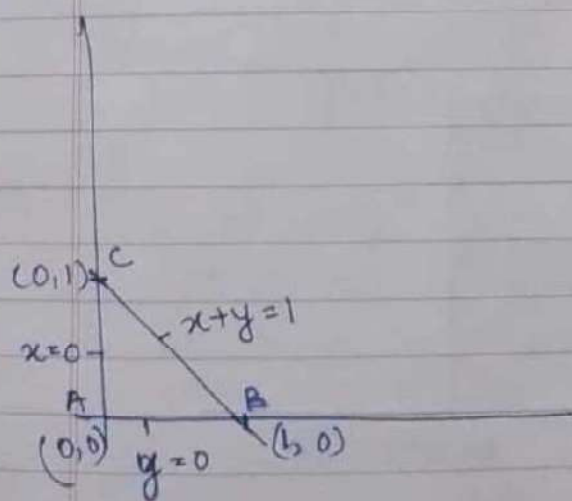 C
(0,1)
x+y=1
x=0
A
B
(0,0)
y=0
(1,0)